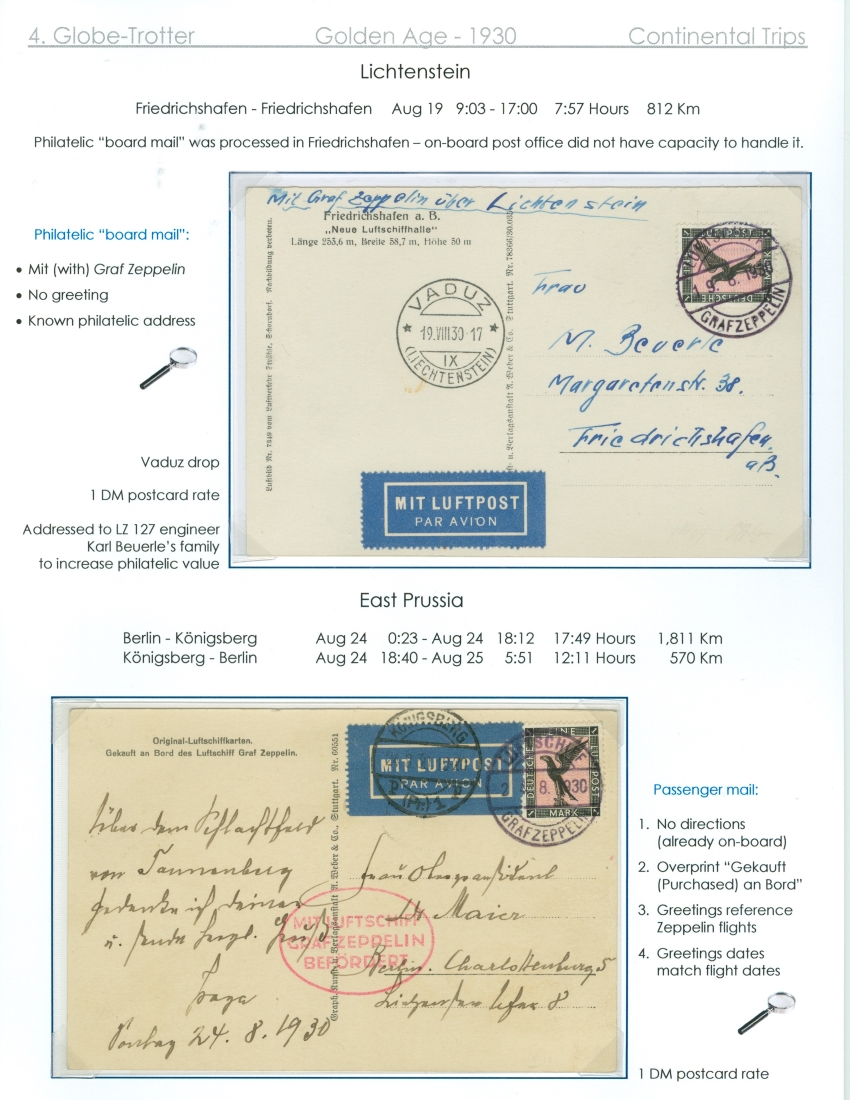 4. Globe-Trotter Golden Age - 1930 Continental Trips
Lichtenstein
Friedrichshafen - Friedrichshafen Aug 19 9:03 - 17:00 7:57 Hours 812 Km
Philatelic “board mail” was processed in Friedrichshafen – on-board post office did not have capacity to handle it.
Philatelic “board mail”:
• Mit (with) Graf Zeppelin
• No greeting
• Known philatelic address
Vaduz drop
1 DM postcard rate
Addressed to LZ 127 engineer
Karl Beuerle’s family
to increase philatelic value
Mit Graf Zeppelin über Lichtenstein
Friedrichshafen a. B.
„Neue Luftschiffhalle“
Länge 253,6 m, Breite 58,7 m, Höhe 50 m
VADUZ
19.VIII30-17
IX
(LIECHTENSTEIN)
LUFTSCHIFF
GRAF ZEPPELIN
Frau
M. Beuerle
Margaretenstr. 38.
Friedrichshafen
a/B.
MIT LUFTPOST
PAR AVION
East Prussia
Berlin - Königsberg Aug 24 0:23 - Aug 24 18:12 17:49 Hours 1,811 Km
Königsberg - Berlin Aug 24 18:40 - Aug 25 5:51 12:11 Hours 570 Km
Original-Luftschiffkarten.
Gekauft an Bord des Luftschiff Graf Zeppelin.
MIT LUFTPOST
PAR AVION
DEUTSCHE LUFTPOST
MARK
8. 1930
GRAF ZEPPELIN
Über dem Schlachtfeld
von Tannenberg
gedenke ich deiner
Sonntag 24. 8. 1930
MIT LUFTSCHIFF
GRAF ZEPPELIN
BEFÖRDERT
Graph. Kunst- u. Verlagsanstalt A. Weber & Co., Stuttgart. Nr. 60551
Frau
Dr Maier
Berlin. Charlottenburg 5
8
Passenger mail:
1. No directions
(already on-board)
2. Overprint “Gekauft
(Purchased) an Bord”
3. Greetings reference
Zeppelin flights
4. Greetings dates
match flight dates
1 DM postcard rate